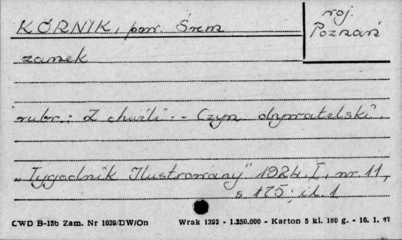 KÓRNIK, pow. Śrem
woj. Poznań
zamek
rubr.: Z chwili - Czyn obywatelski.
"Tygodnik Ilustrowany" 1924. I, nr 11,
s. 175; il. 1
CWD B-15b Zam. Nr 1039/DW/On Wrak 1392 - 1.250.000 - Karton 5 kl. 180 g. - 10. 1. 47